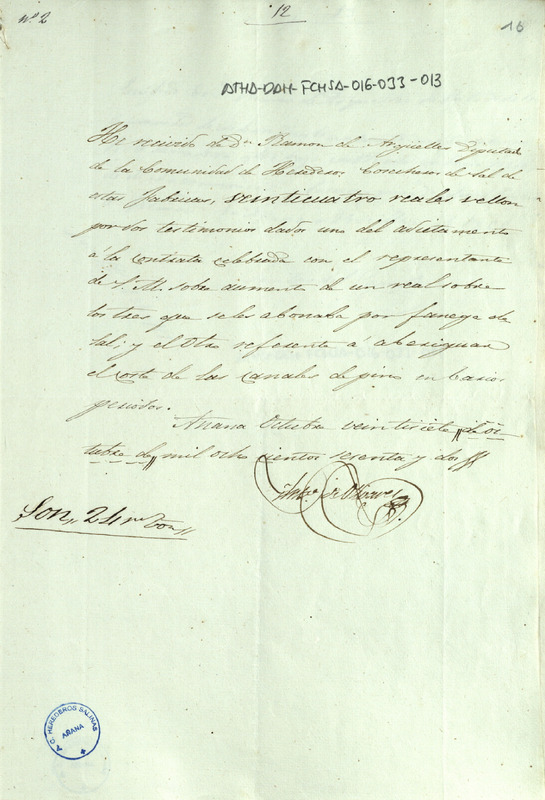 nº 2
12
16
ATHA-DAH-FCHSA-016-033-013
He recivido de Dn. Ramon de Arguelles Diputado
de la Comunidad de Herederos Cosecheros de Sal de
estas Fabricas, veinticuatro reales vellon
por dos testimonios dados uno del adictamento
á la contrata celebrada con el representante
de S. M. sobre aumento de un real sobre
los tres que se les abonaba por fanega de
Sal; y el otro referente á aberiguar
el coste de las canales de pino en barios
periodos.
Añana Octubre veintisiete, de Oc
tubre de, mil ocho cientos sesenta y dos
Son,, 24 rs. von,,
C. HEREDEROS SALINAS
AÑANA